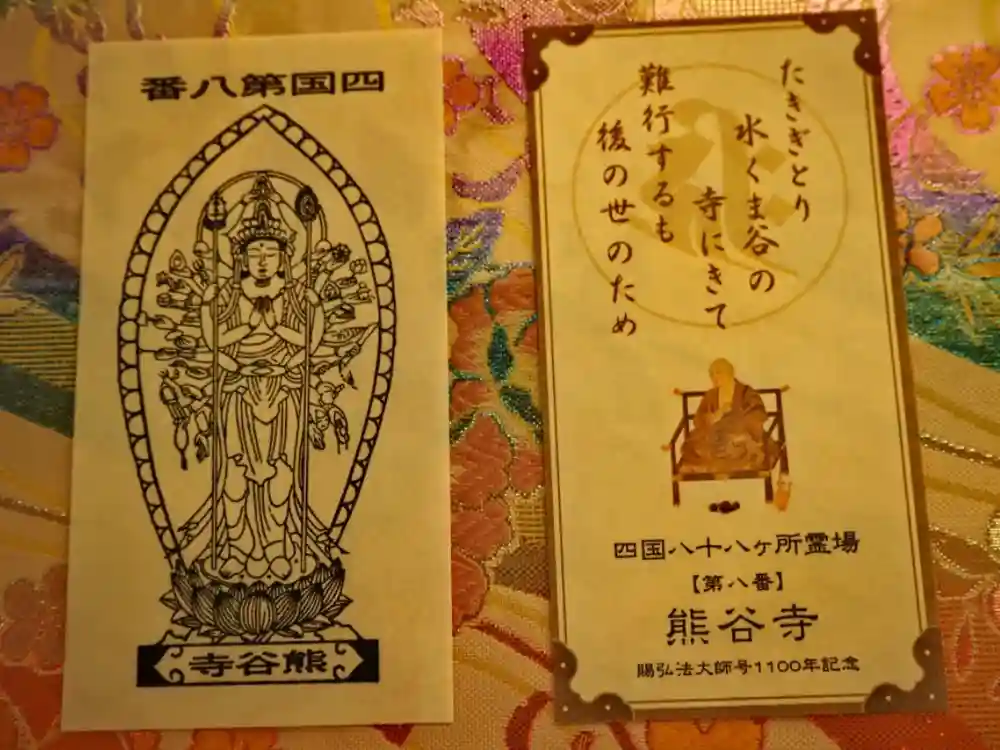 四国第八番
熊谷寺
たきぎとり
水くま谷の
寺にきて
難行するも
後の世のため
四国八十八ヶ所霊場
【第八番】
熊谷寺
賜弘法大師号1100年記念